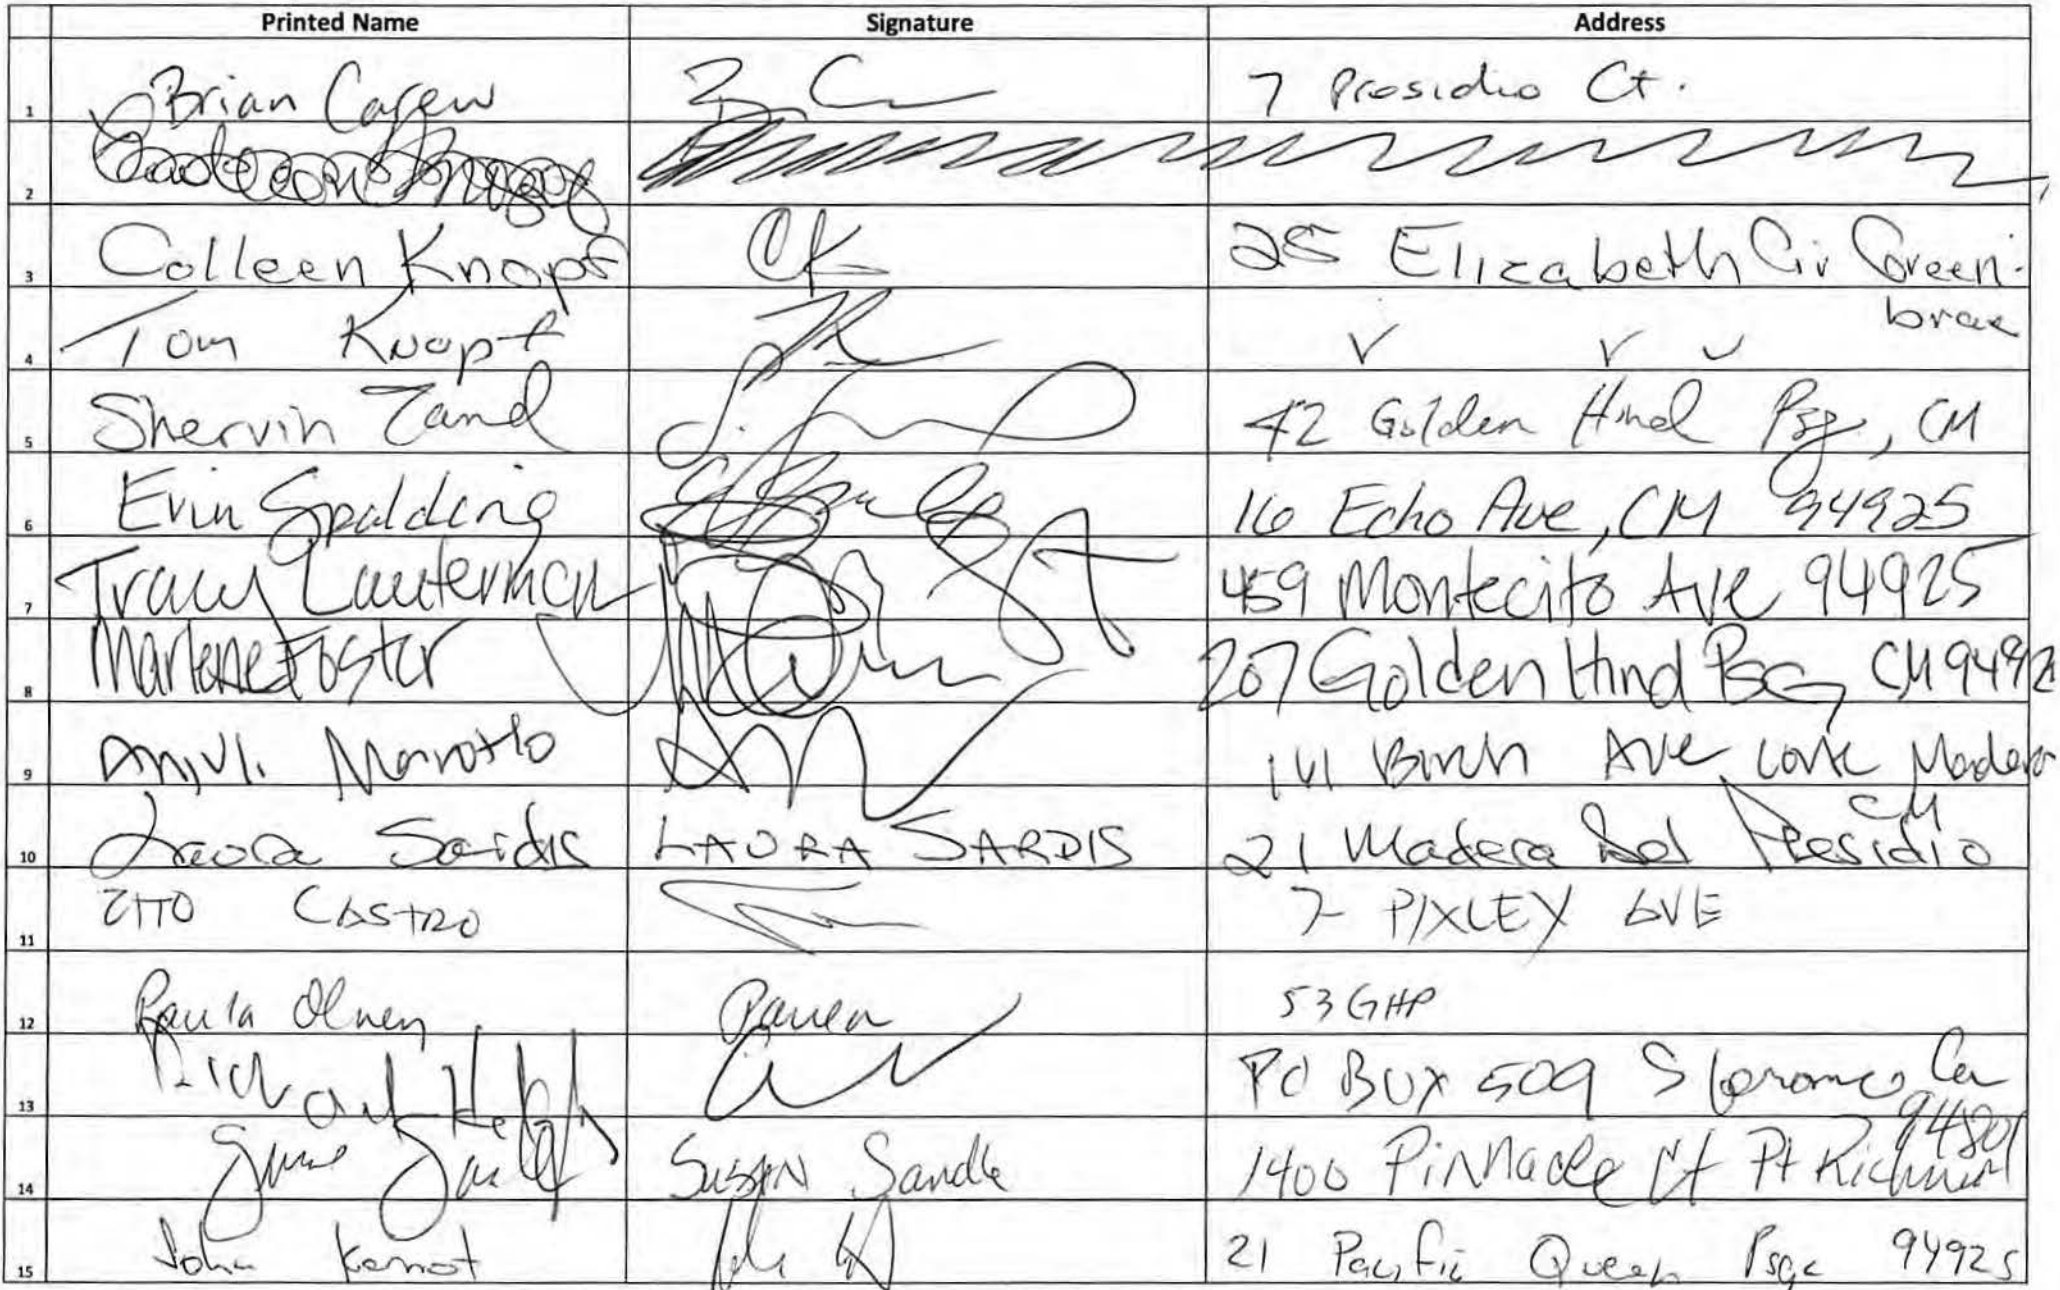 Printed Name Signature Address
1 Brian Carew 7 Presidio Ct.
2
3 Colleen Knopf CK 25 Elizabeth Cir Green-
brae
4 Tom Knopf TK ✓ ✓ ✓
5 Shervin Zand 42 Golden Hind Psg, CM
6 Erin Spalding 16 Echo Ave, CM 94925
7 Tracy Lauterman 459 Montecito Ave 94925
8 Marlene Foster 207 Golden Hind PSG, CM 9492
9 Anjuli Marotto 141 Birch Ave, Corte Madera
CM
10 Laura Sardis LAURA SARDIS 21 Madera Del Presidio
11 OTTO CASTRO 7 PIXLEY AVE
12 Paula Olney Paula 53 GHP
13 Richard PO BOX 509 Ca
94801
14 SUSAN Sandle 1400 Pinnacle Ct Pt Richmond
15 John 21 Pacific Queen Psge 94925